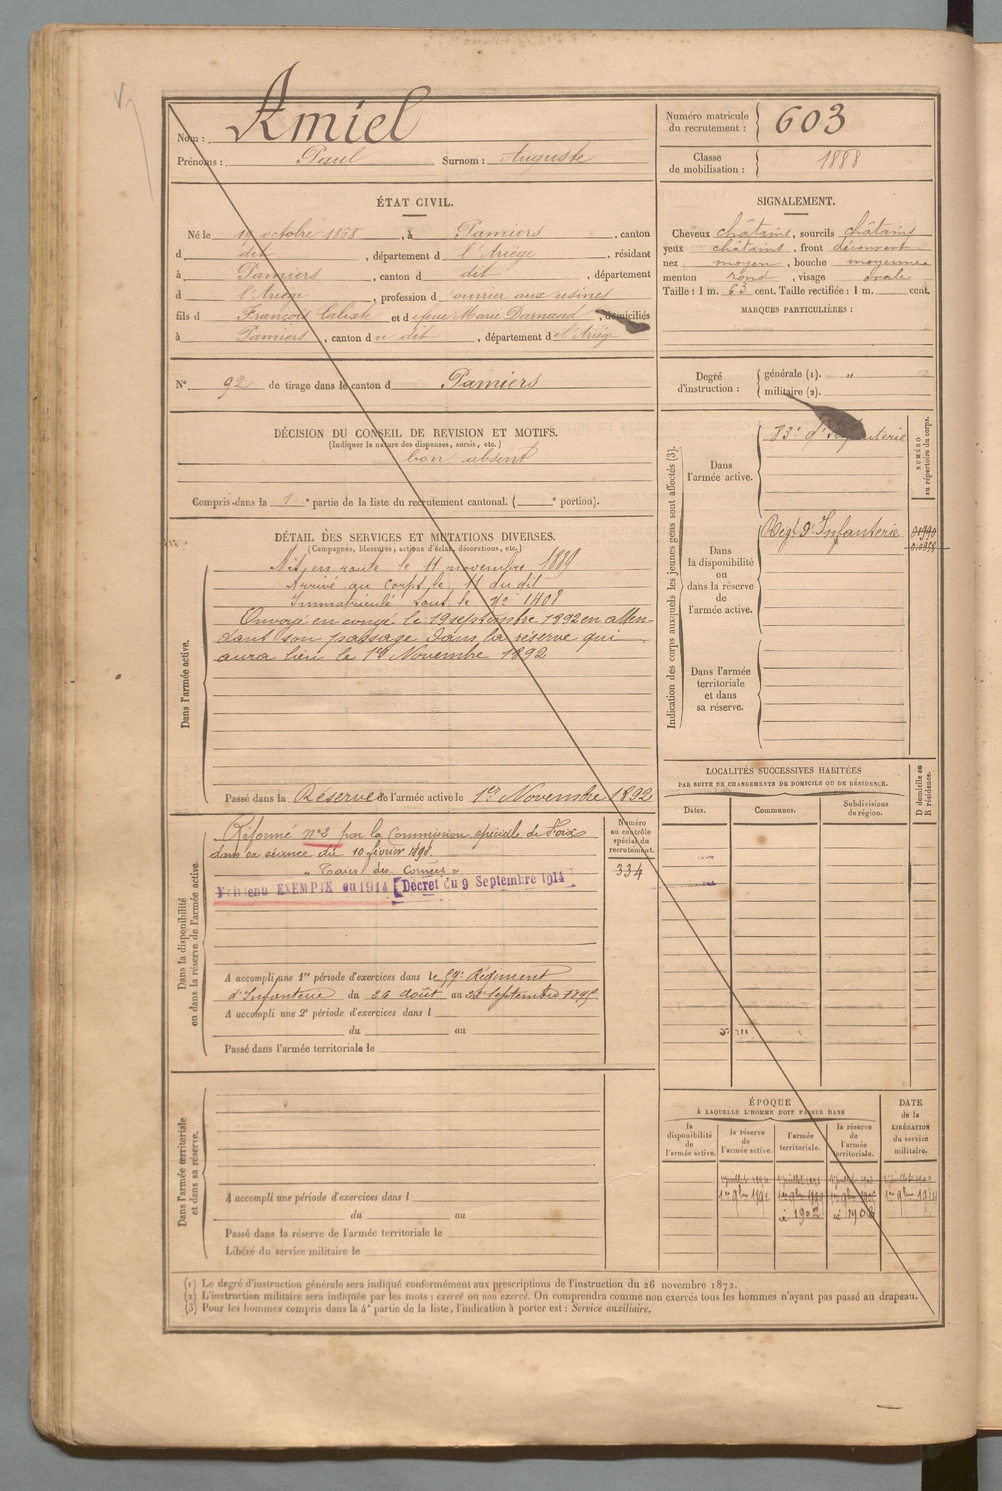 Nom : Amiel
Prénoms : Paul Surnom : Auguste
Numéro matricule du recrutement : 603
Classe de mobilisation : 1888
ÉTAT CIVIL.
Né le 19 octobre 1868, à Pamiers, canton
d dit, département d l'Ariège, résidant
à Pamiers, canton d dit, département
d l'Ariège, profession d ouvrier aux usines
fils d François Calixte et d Marie Darnaud, domiciliés
à Pamiers, canton du dit, département de l'Ariège
N° 92 de tirage dans le canton d Pamiers
SIGNALEMENT.
Cheveux châtains, sourcils châtains
yeux châtains, front découvert
nez moyen, bouche moyenne
menton rond, visage ovale
Taille : 1 m. 63 cent. Taille rectifiée : 1 m. cent.
MARQUES PARTICULIÈRES :
Degré d'instruction : générale (1). "
militaire (2).
DÉCISION DU CONSEIL DE REVISION ET MOTIFS.
(Indiquer la nature des dispenses, sursis, etc.)
bon absent
Compris dans la 1e partie de la liste du recrutement cantonal. ( e portion).
DÉTAIL DES SERVICES ET MUTATIONS DIVERSES.
(Campagnes, blessures, actions d'éclat, décorations, etc.)
Dans l'armée active.
Mis en route le 11 novembre 1889
Arrivé au corps le 11 du dit
Immatriculé sous le N° 1408
Envoyé en congé le 19 septembre 1892 en atten-
dant son passage dans la réserve qui
aura lieu le 1er Novembre 1892
Passé dans la Réserve de l'armée active le 1er Novembre 1892
Dans la disponibilité ou dans la réserve de l'armée active.
Numéro au contrôle spécial du recrutement.
334
Réformé n°2 par la Commission spéciale de Foix
dans sa séance du 10 février 1898.
" Taies des Cornées "
Maintenu EXEMPTÉ en 1914 [Décret du 9 Septembre 1914
A accompli une 1re période d'exercices dans le 59e Régiment
d'Infanterie du 26 août au 22 septembre 1895
A accompli une 2e période d'exercices dans l
du au
Passé dans l'armée territoriale le
Dans l'armée territoriale et dans sa réserve.
A accompli une période d'exercices dans l
du au
Passé dans la réserve de l'armée territoriale le
Libéré du service militaire le
Indication des corps auxquels les jeunes gens sont affectés (3).
NUMÉRO au répertoire du corps.
Dans l'armée active.
83e d'Infanterie
Dans la disponibilité ou dans la réserve de l'armée active.
Régt d'Infanterie
Dans l'armée territoriale et dans sa réserve.
LOCALITÉS SUCCESSIVES HABITÉES
PAR SUITE DE CHANGEMENTS DE DOMICILE OU DE RÉSIDENCE.
Dates. Communes. Subdivisions de région. D domicile ou R résidence.
ÉPOQUE
À LAQUELLE L'HOMME DOIT PASSER DANS
la disponibilité de l'armée active.
la réserve de l'armée active.
l'armée territoriale.
la réserve de l'armée territoriale.
DATE de la LIBÉRATION du service militaire.
1er 9bre 1892
à 1902 à 1908
(1) Le degré d'instruction générale sera indiqué conformément aux prescriptions de l'instruction du 26 novembre 1872.
(2) L'instruction militaire sera indiquée par les mots : exercé ou non exercé. On comprendra comme non exercés tous les hommes n'ayant pas passé au drapeau.
(3) Pour les hommes compris dans la 4e partie de la liste, l'indication à porter est : Service auxiliaire.